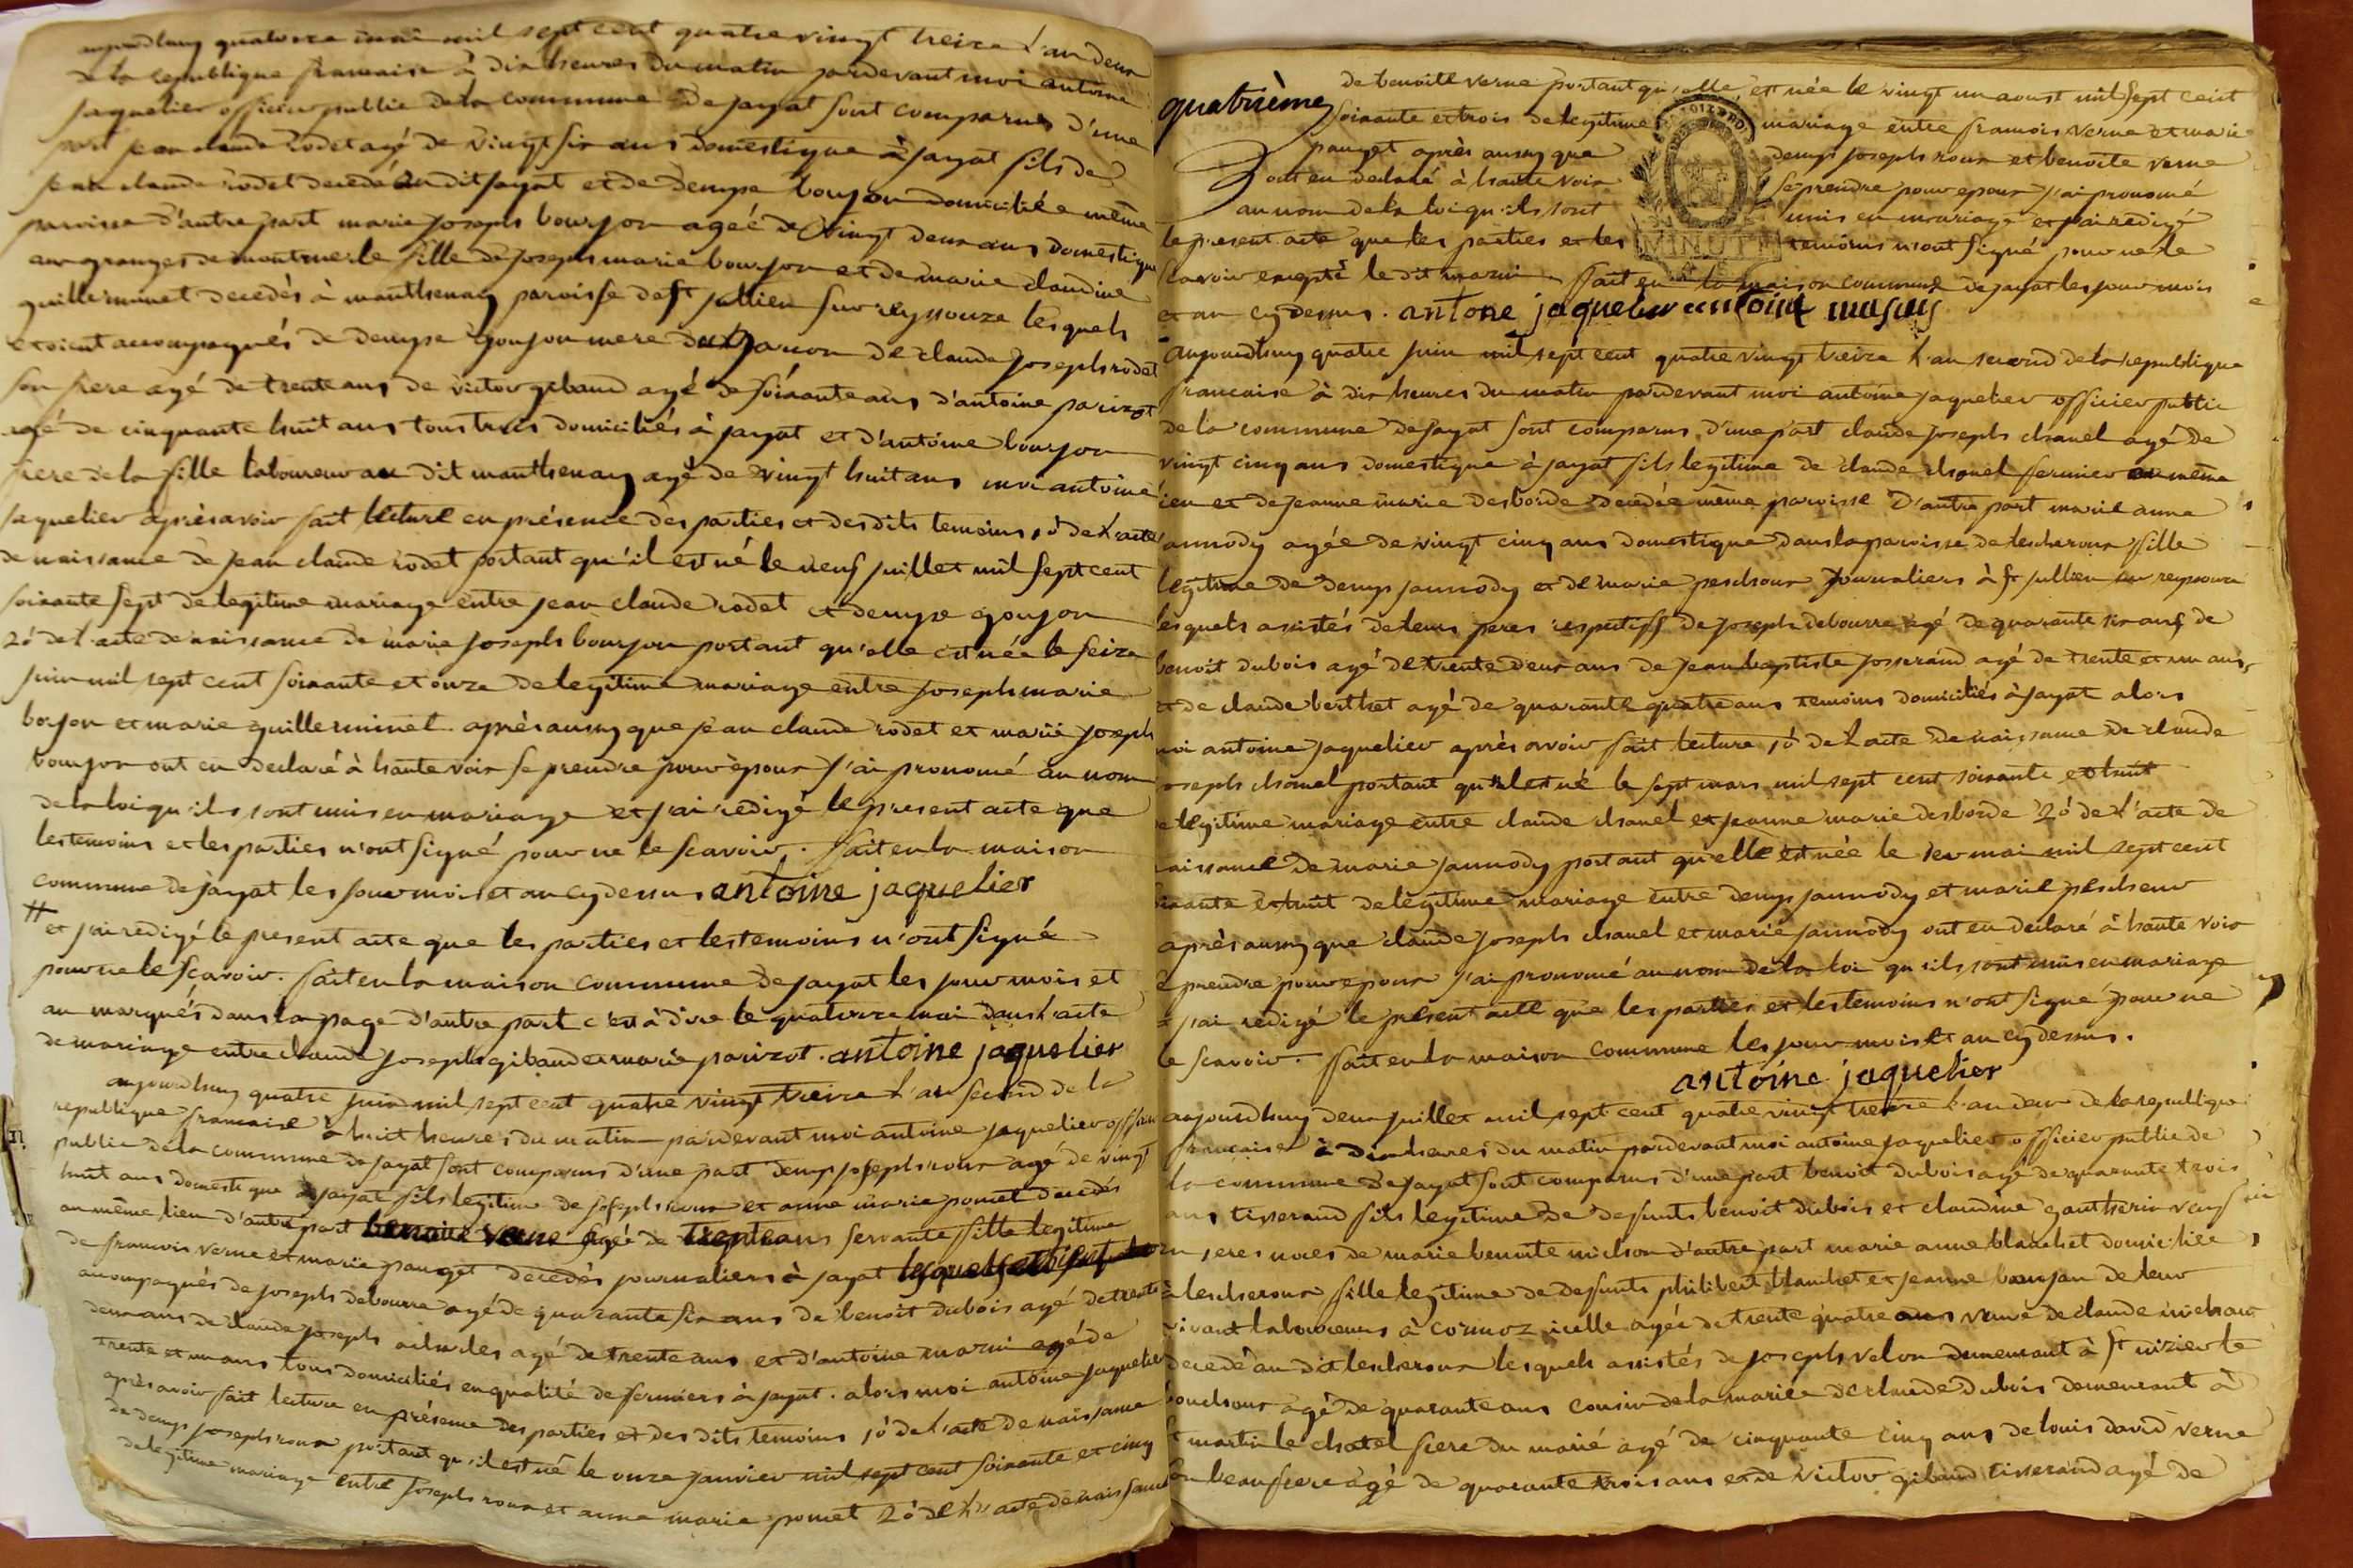 aujourdhuy quatorze mai mil sept cent quatre vingt treize l'an deux
de la republique francaise à dix heures du matin pardevant moi antoine
jaquelier officier public de la commune de jayat sont comparus d'une
part jean claude rodet agé de vingt six ans domestique à jayat fils de
jean claude rodet decedé au dit jayat et de denyse goujon domiciliée même
paroisse d'autre part marie joseph bourjon ageé de vingt deux ans domestique
aux granges de montmerle fille de joseph marie bourjon et de marie claudine
guilleminet decedés à manthenay paroisse de st jullien sur reyssouze lesquels
etoient accompagnés de denyse goujon mere du garcon de claude joseph rodet
son frere agé de trente ans de victor gebaud agé de soixante ans d'antoine parizot
agé de cinquante huit ans tous trois domiciliés à jayat et d'antoine bourjon
frere de la fille laboureur au dit manthenay agé de vingt huit ans moi antoine
jaquelier après avoir fait lecture en présence des parties et des dits temoins 1º de l'acte
de naissance de jean claude rodet portant qu'il est né le neuf juillet mil sept cent
soixante sept de legitime mariage entre jean claude rodet et denyse goujon
2º de l'acte de naissance de marie joseph bourjon portant qu'elle est née le seize
juin mil sept cent soixante et onze de legitime mariage entre joseph marie
borjon et marie guilleminet après aussy que jean claude rodet et marie joseph
bourjon ont eu declaré à haute voix se prendre pour epoux j'ai prononcé au nom
de la loi qu'ils sont unis en mariage et j'ai redigé le present acte que
les temoins et les parties n'ont signé pour ne le scavoir. fait en la maison
commune de jayat les jour mois et an cy dessus antoine jaquelier
# et j'ai redigé le present acte que les parties et les temoins n'ont signé
pour ne le scavoir. fait en la maison commune de jayat les jour mois et
an marqués dans la page d'autre part c'est à dire le quatorze mai dans l'acte
de mariage entre claude joseph gibaud et marie parizot. antoine jaquelier
aujourdhuy quatre juin mil sept cent quatre vingt treize l'an second de la
republique francaise à huit heures du matin pardevant moi antoine jaquelier officier
public de la commune de jayat sont comparus d'une part denys joseph roux agé de vingt
huit ans domestique à jayat fils legitime de joseph roux et anne marie pomet decedés
au même lieu d'autre part benoite verne agé de trente ans servante fille legitime
de francois verne et marie pauget decedés journaliers à jayat lesquels
accompagnés de joseph debourre agé de quarante six ans de benoit dubois agé de trente
deux ans de claude joseph agé de trente ans et d'antoine mazui agé de
trente et un ans tous domiciliés en qualité de fermiers à jayat. alors moi antoine jaquelier
après avoir fait lecture en présence des parties et des dits temoins 1º de l'acte de naissance
de denys joseph roux portant qu'il est né le onze janvier mil sept cent soixante et cinq
de legitime mariage entre joseph roux et anne marie pomet 2º de l'acte de naissance
quatrième
de benoite verne portant qu'elle est née le vingt un aoust mil sept cent
soixante et trois de legitime mariage entre francois verne et marie
pauget après aussy que denys joseph roux et benoite verne
ont eu declaré à haute voix se prendre pour epoux j'ai prononcé
au nom de la loi qu'ils sont unis en mariage et j'ai redigé
le present acte que les parties et les temoins n'ont signé pour ne le
MINUTE
scavoir excepté le dit mazui fait en la maison commune de jayat les jour mois
et an cy dessus. antone jaquelier antoine masuy
aujourdhuy quatre juin mil sept cent quatre vingt treize l'an second de la republique
francaise à dix heures du matin pardevant moi antoine jaquelier officier public
de la commune de jayat sont comparus d'une part claude joseph chanel agé de
vingt cinq ans domestique à jayat fils legitime de claude chanel fermier au même
lieu et de jeanne marie desborde decedée même paroisse d'autre part marie anne
jannody agée de vingt cinq ans domestique dans la paroisse de lescheroux fille
legitime de denys jannody et de marie pescheur journaliers à st jullien sur reyssouze
lesquels assistés de leurs peres respectifs de joseph debourre agé de quarante six ans de
benoit dubois agé de trente deux ans de jean baptiste josserand agé de trente et un ans
et de claude berthet agé de quarante quatre ans temoins domiciliés à jayat alors
moi antoine jaquelier après avoir fait lecture 1º de l'acte de naissance de claude
joseph chanel portant qu'il est né le sept mars mil sept cent soixante et huit
de legitime mariage entre claude chanel et jeanne marie desborde 2º de l'acte de
naissance de marie jannody portant qu'elle est née le mai mil sept cent
soixante et huit de legitime mariage entre denys jannody et marie pescheur
après aussy que claude joseph chanel et marie jannody ont eu declaré à haute voix
se prendre pour epoux j'ai prononcé au nom de la loi qu'ils sont unis en mariage
et j'ai redigé le present acte que les parties et les temoins n'ont signé pour ne
le scavoir. fait en la maison commune les jour mois et an cy dessus.
antoine jaquelier
aujourdhuy deux juillet mil sept cent quatre vingt treize l'an deux de la republique
francaise à dix heures du matin pardevant moi antoine jaquelier officier public de
la commune de jayat sont comparus d'une part benoit dubois agé de quarante trois
ans tisserand fils legitime de defunts benoit dubois et claudine gautherin veuf
en noces de marie benoite michon d'autre part marie anne blanchet domiciliée
à lescheroux fille legitime de defunts philibert blanchet et jeanne bourjon de leur
vivant laboureurs à cormoz icelle agée de trente quatre ans veuve de claude michaux
decedé au dit lescheroux lesquels assistés de joseph velon demeurant à st nizier le
bouchoux agé de quarante ans cousin de la mariée de claude dubois demeurant à
st martin le chatel frere du marié agé de cinquante cinq ans de louis david verne
son beaufrere agé de quarante trois ans et de victor gibaud tisserand agé de